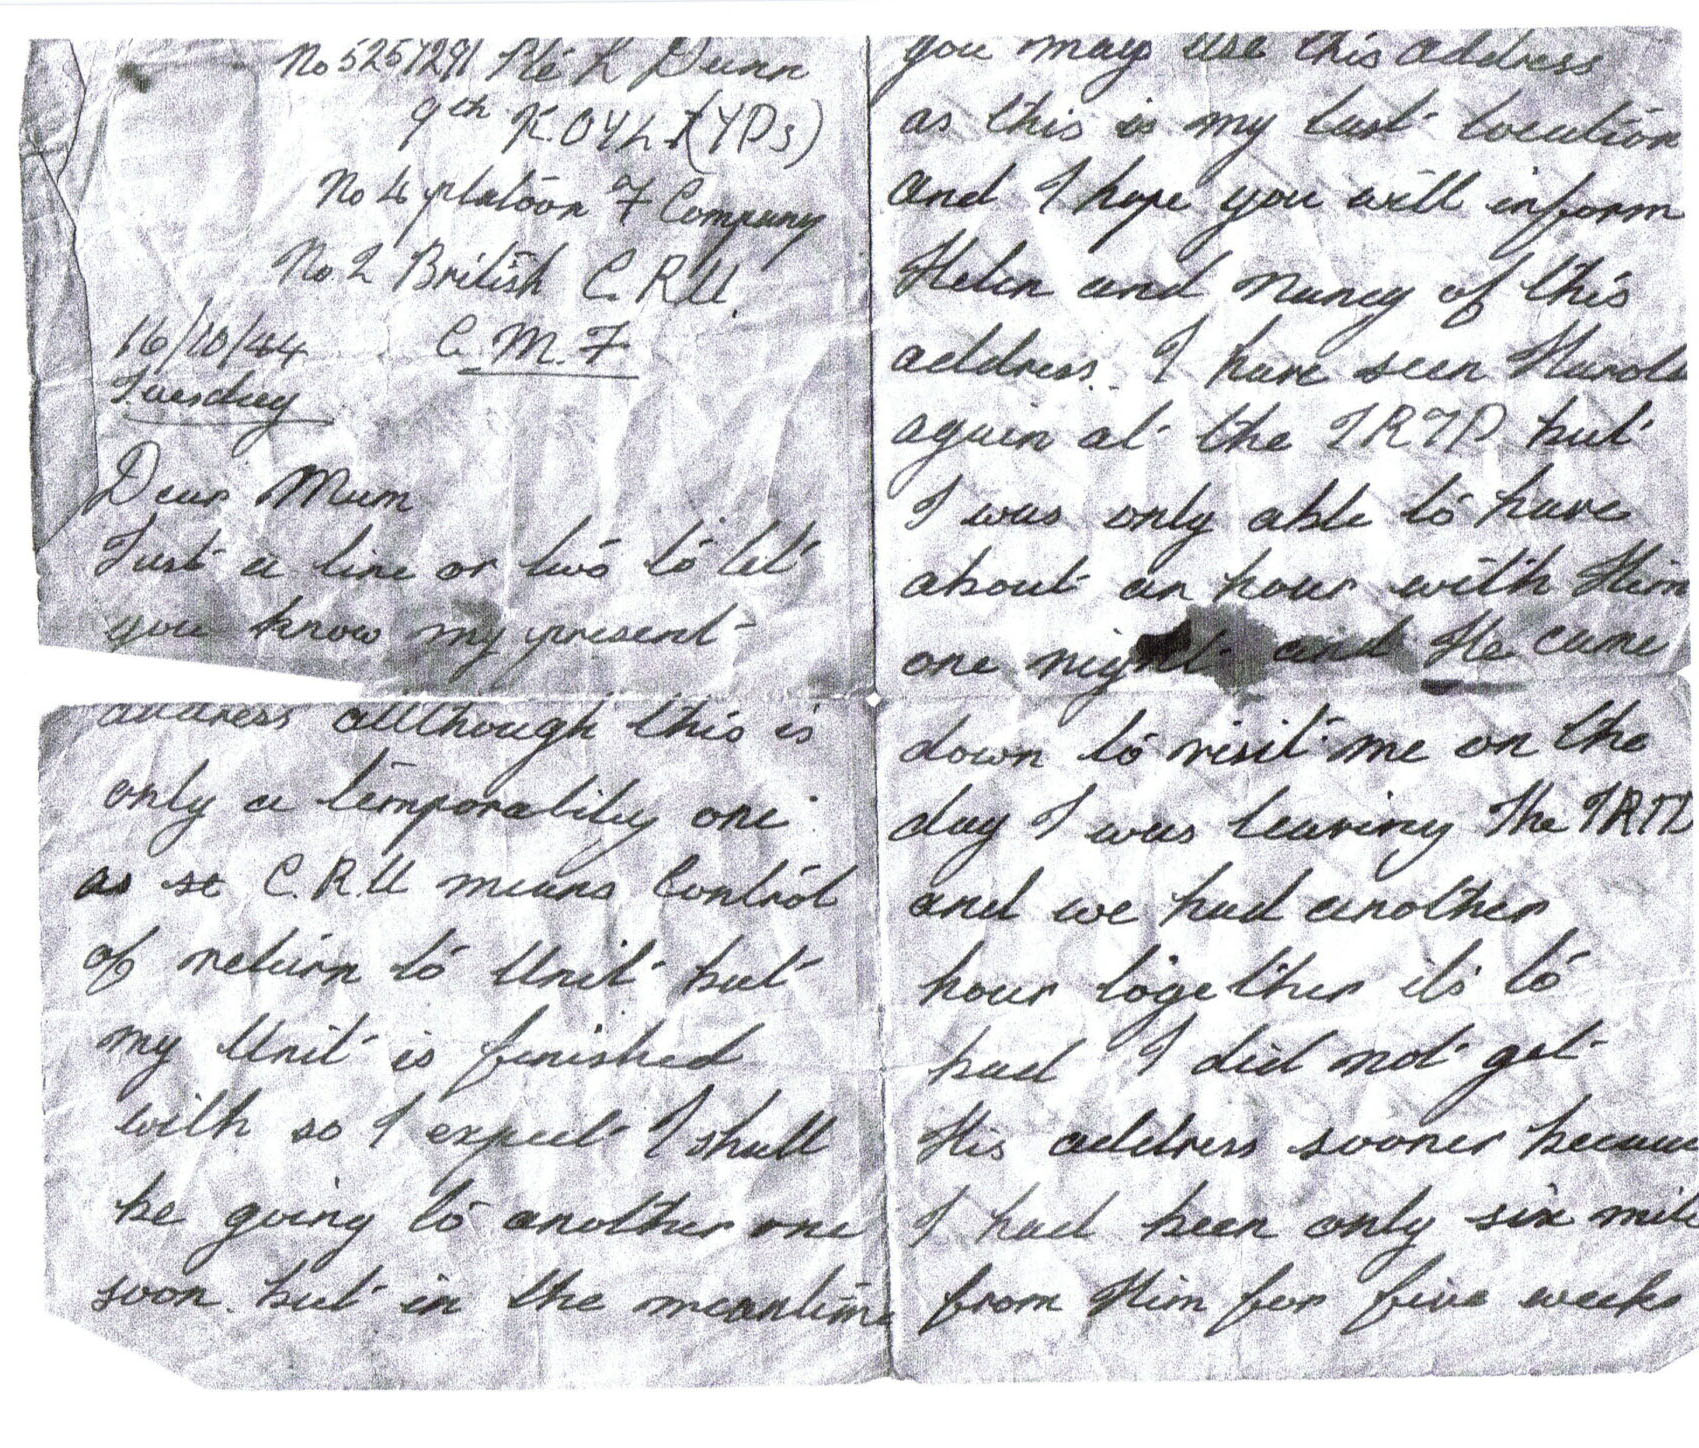 No 5257291 Pte L Dunn
9th K.O.Y.L.I (YDs)
No 4 platoon F Company
No. 2 British C.R.U.
16/10/44 C.M.F
Tuesday
Dear Mum
Just a line or two to let
you know my present
address allthough this is
only a temporality one
as C.R.U means Control
of return to Unit but
my Unit is finished
with so I expect I shall
be going to another one
soon. but in the meantime
you may use this address
as this is my last location
and I hope you will inform
Helen and Nancy of this
address. I have seen Harold
again at the IRTD but
I was only able to have
about an hour with Him
one night and He came
down to visit me on the
day I was leaving The IRTD
and we had another
hour together its to
bad I did not get
His address sooner because
I had been only six mile
from Him for five weeks